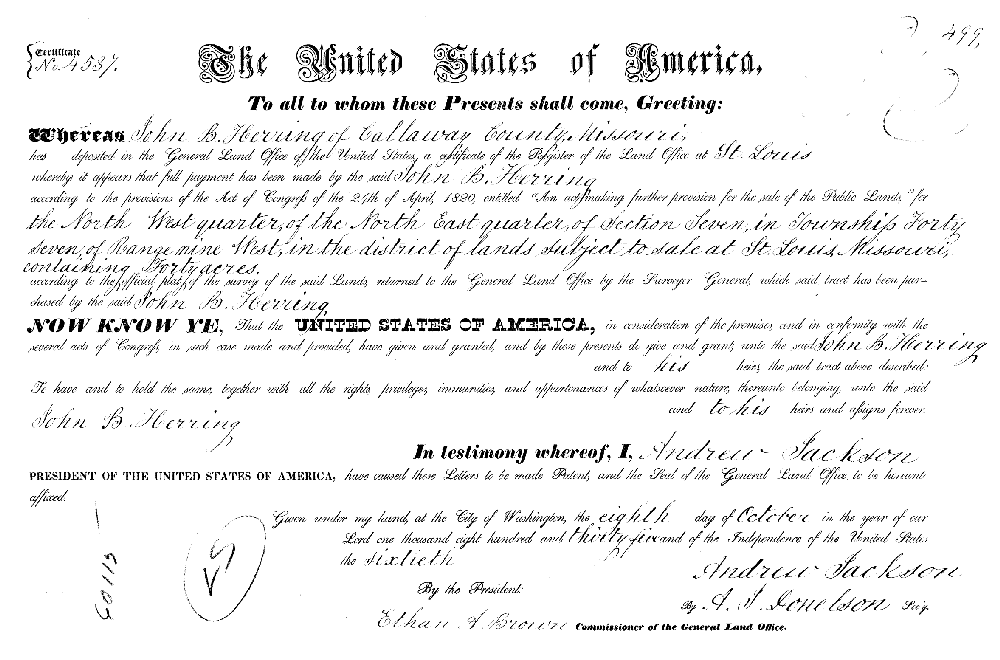 499.
Certificate
No. 4537.
The United States of America,
To all to whom these Presents shall come, Greeting:
Whereas John B. Herring of Callaway County, Missouri,
has deposited in the General Land Office of the United States, a certificate of the Register of the Land Office at St. Louis
whereby it appears that full payment has been made by the said John B. Herring
according to the provisions of the Act of Congress of the 24th of April, 1820, entitled "An act making further provision for the sale of the Public Lands," for
the North West quarter, of the North East quarter, of Section Seven, in Township Forty
seven, of Range nine West, in the district of lands subject to sale at St. Louis, Missouri,
containing Forty acres.
according to the official plat of the survey of the said Lands, returned to the General Land Office by the Surveyor General, which said tract has been pur-
chased by the said John B. Herring
NOW KNOW YE, That the UNITED STATES OF AMERICA, in consideration of the premises, and in conformity with the
several acts of Congress, in such case made and provided, have given and granted, and by these presents do give and grant, unto the said John B. Herring
and to his heirs, the said tract above described:
To have and to hold the same, together with all the rights, privileges, immunities, and appurtenances of whatsoever nature, thereunto belonging, unto the said
John B Herring
and to his heirs and assigns forever.
In testimony whereof, I, Andrew Jackson
PRESIDENT OF THE UNITED STATES OF AMERICA, have caused these Letters to be made Patent, and the Seal of the General Land Office to be hereunto
affixed.
Given under my hand, at the City of Washington, the eighth day of October in the year of our
Lord one thousand eight hundred and thirty five and of the Independence of the United States
the sixtieth
Andrew Jackson
By the President:
By A. J. Donelson Sec'y.
Ethan A. Brown Commissioner of the General Land Office.